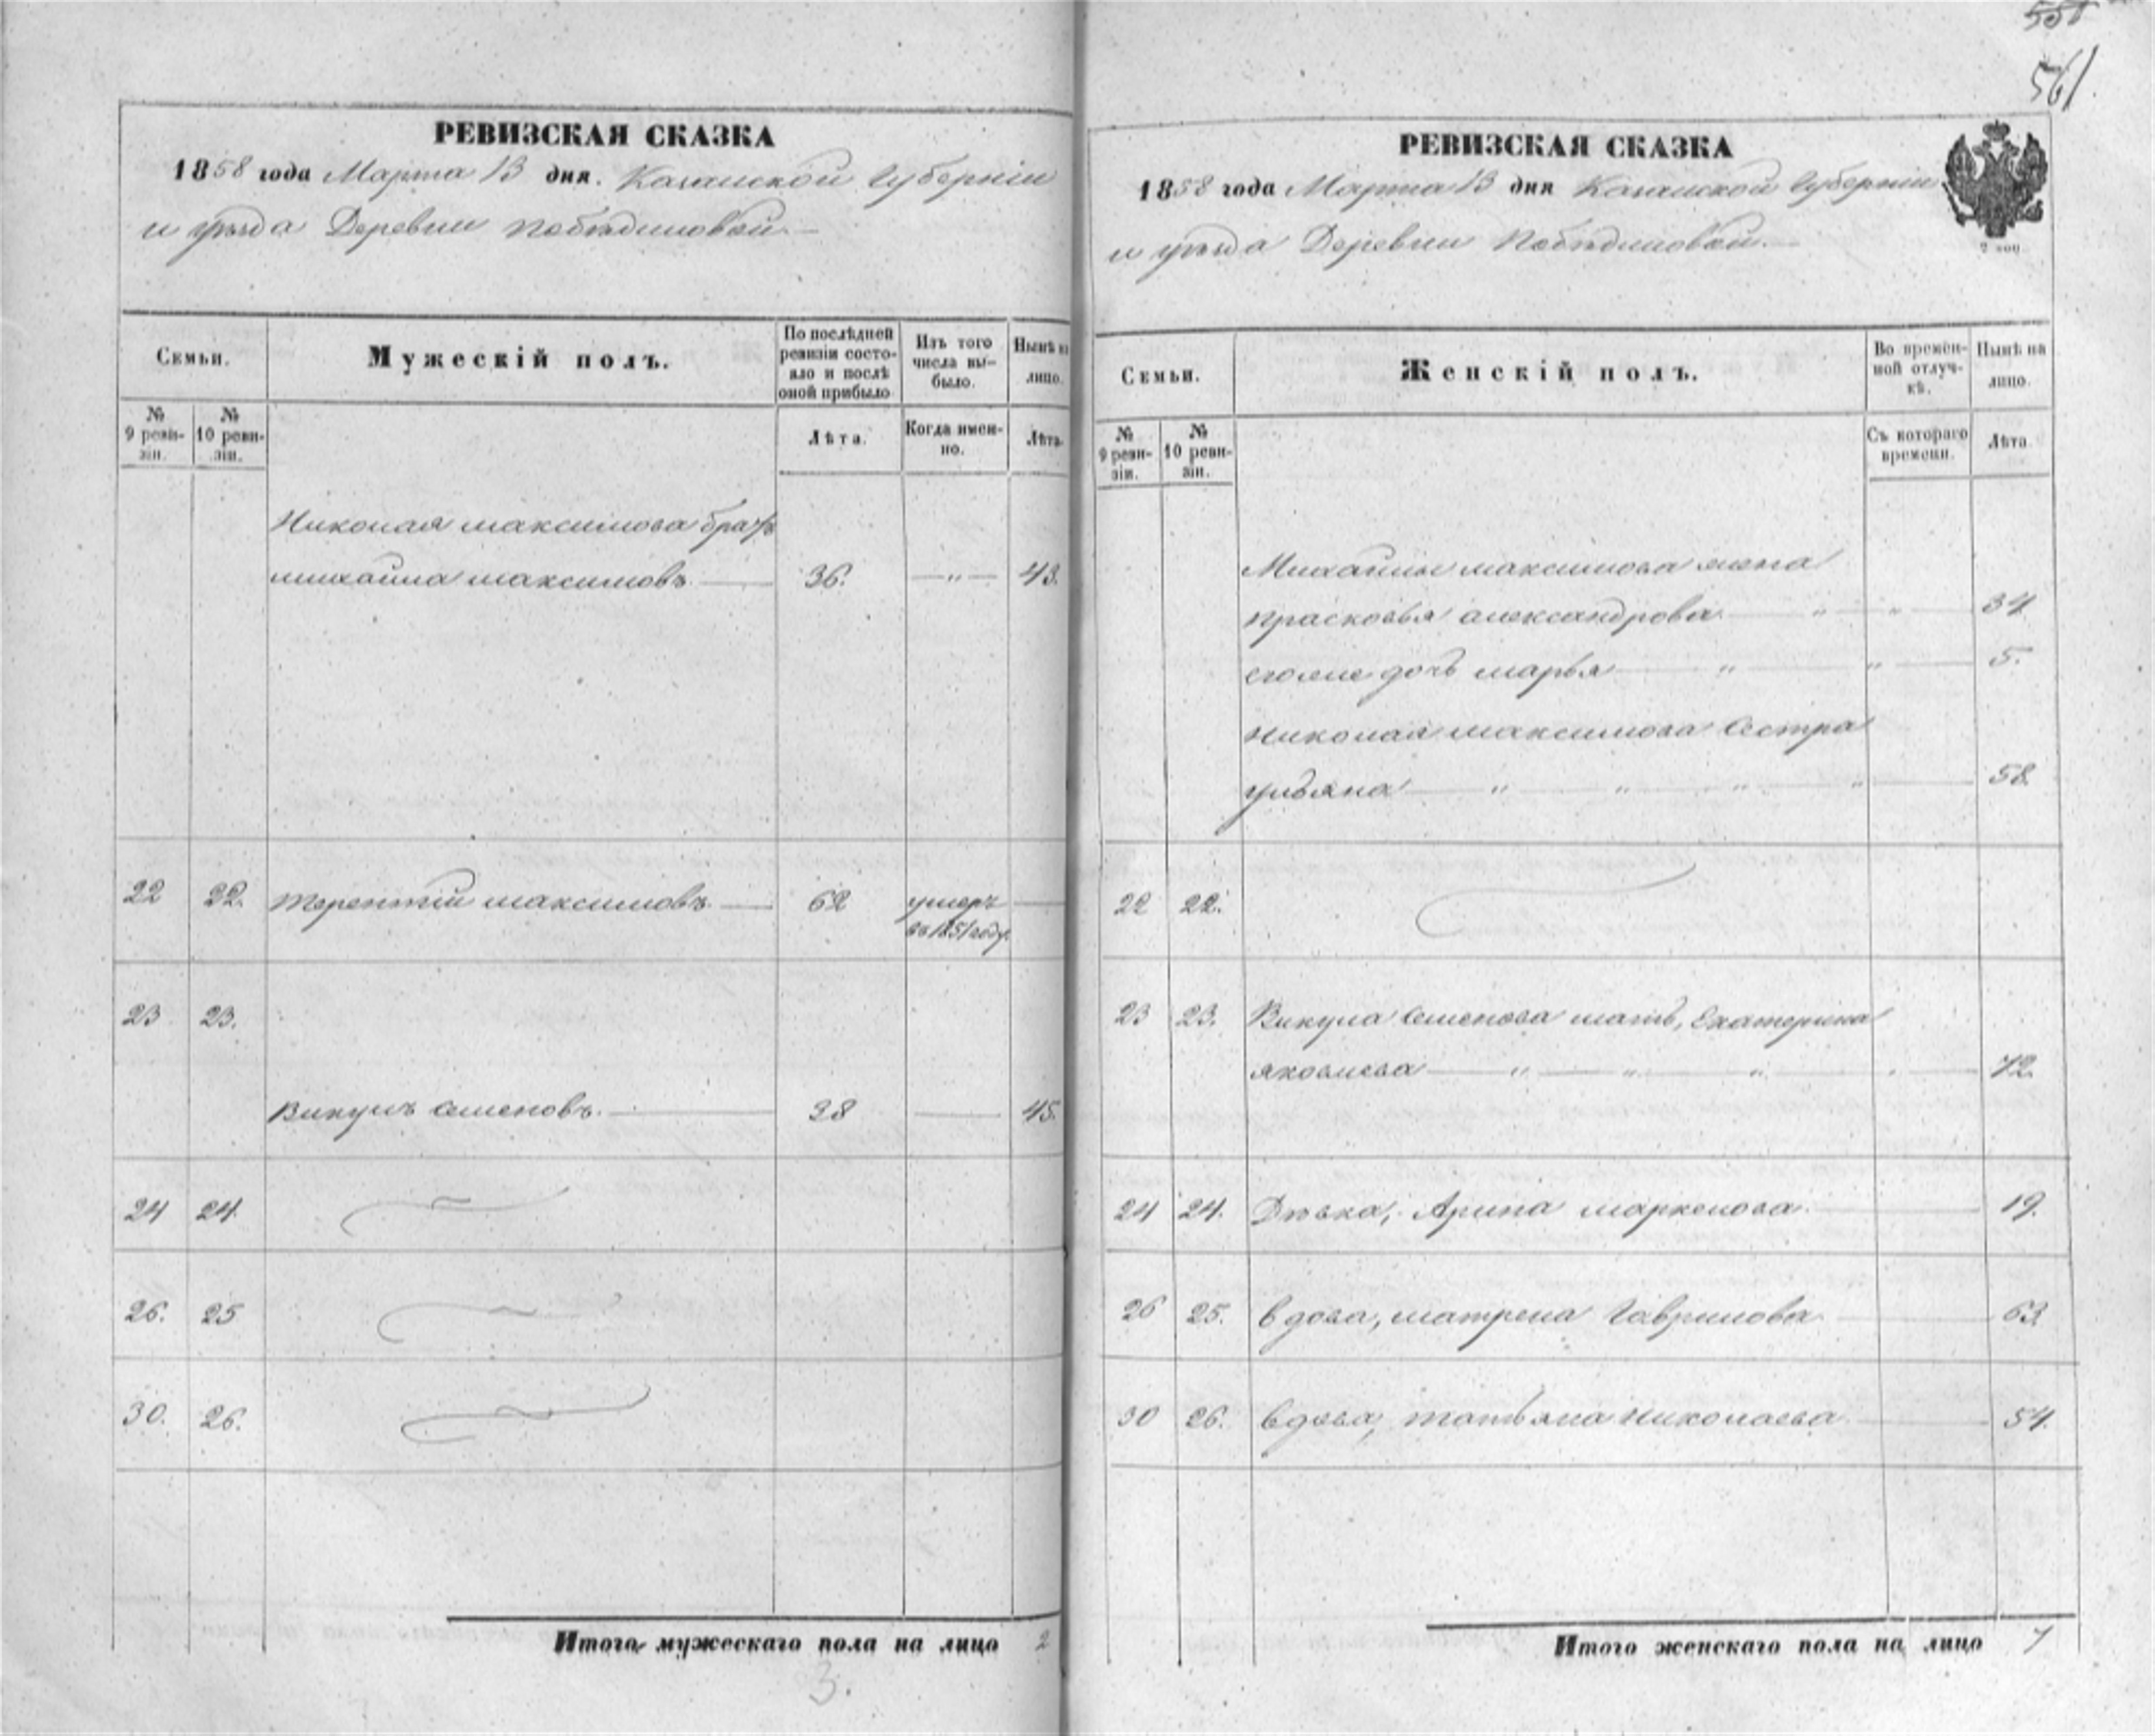 558
561
РЕВИЗСКАЯ СКАЗКА
1858 года Марта 13 дня. Казанской Губерніи
и уѣзда Деревни Побѣдиловой
Семьи.
Мужескій полъ.
По послѣдней ревизіи состояло и послѣ оной прибыло
Изъ того числа выбыло.
Нынѣ на лицо.
№ 9 ревизіи.
№ 10 ревизіи.
Лѣта.
Когда именно.
Лѣта.
Николая максимова братъ
михайла максимовъ 36. —"— 43.
22 22. терентій максимовъ 62 умеръ
въ 1851 году.
23 23.
Викулъ Семеновъ. 38 45.
24 24.
26. 25
30. 26.
Итого мужескаго пола на лицо 2
3.
РЕВИЗСКАЯ СКАЗКА
1858 года Марта 13 дня Казанской Губерніи
и уѣзда Деревни Побѣдиловой.
2 коп
Семьи.
Женскій полъ.
Во временной отлучкѣ.
Нынѣ на лицо.
№ 9 ревизіи.
№ 10 ревизіи.
Съ котораго времени.
Лѣта
Михайлы максимова жена
прасковья александрова " " 34
егоже дочь марья " " 5.
николая максимова Сестра
ульяна " " " " 58.
22 22.
23 23. Викула Семенова мать, Екатерина
яковлева " " " 72.
24 24. Дѣвка, Арина маркелова. 19.
26 25. вдова, матрена Гаврилова 63.
30 26. вдова, татьяна николаева 54.
Итого женскаго пола на лицо 7